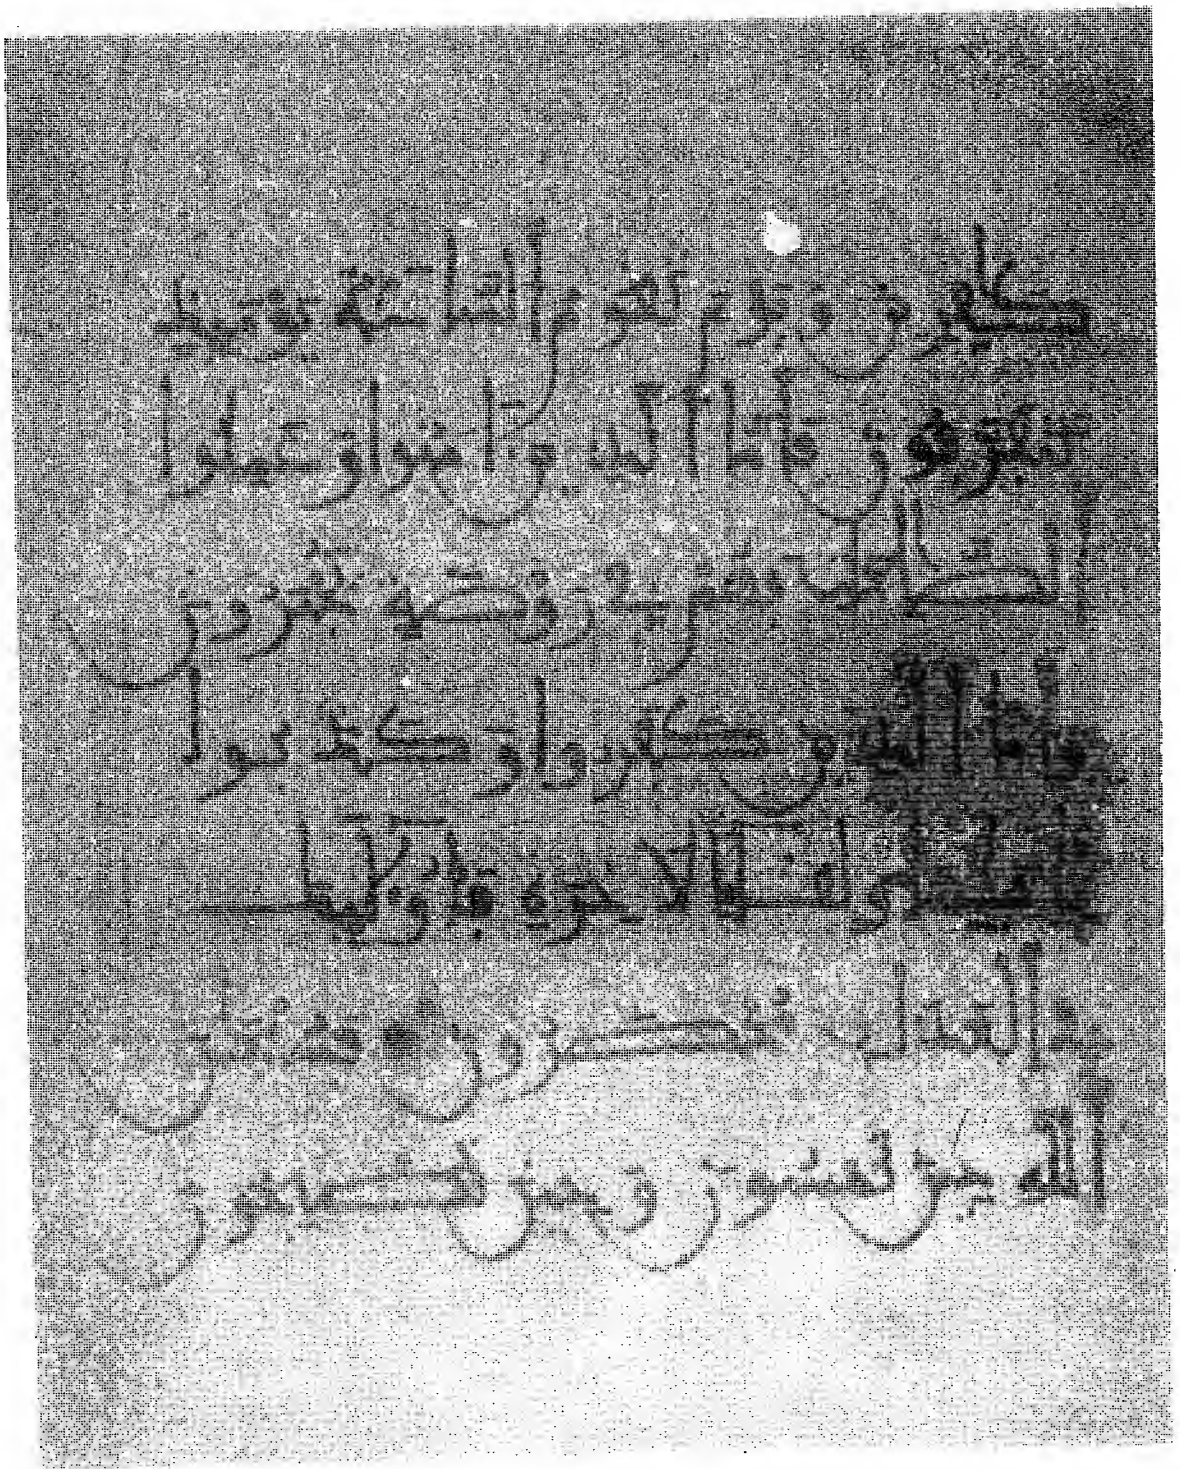 كفرين ويوم تقوم الساعة يومئذ
يتفرقون فأما الذين ءامنوا وعملوا
الصلحت فهم في روضة يحبرون
وأما الذين كفروا وكذبوا
بايتنا ولقاء الاخرة فأولئك
في العذاب محضرون فسبحن
الله حين تمسون وحين تصبحون